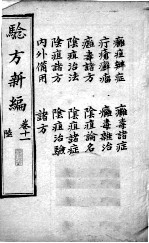 癰疽辨症　癰毒諸症
疔瘡　癰毒雜治
癰毒諸方　陰疽論名
陰疽治法　陰疽諸症
陰疽諸方　陰疽治驗
內外備用　諸方
驗方新編　卷十
陸